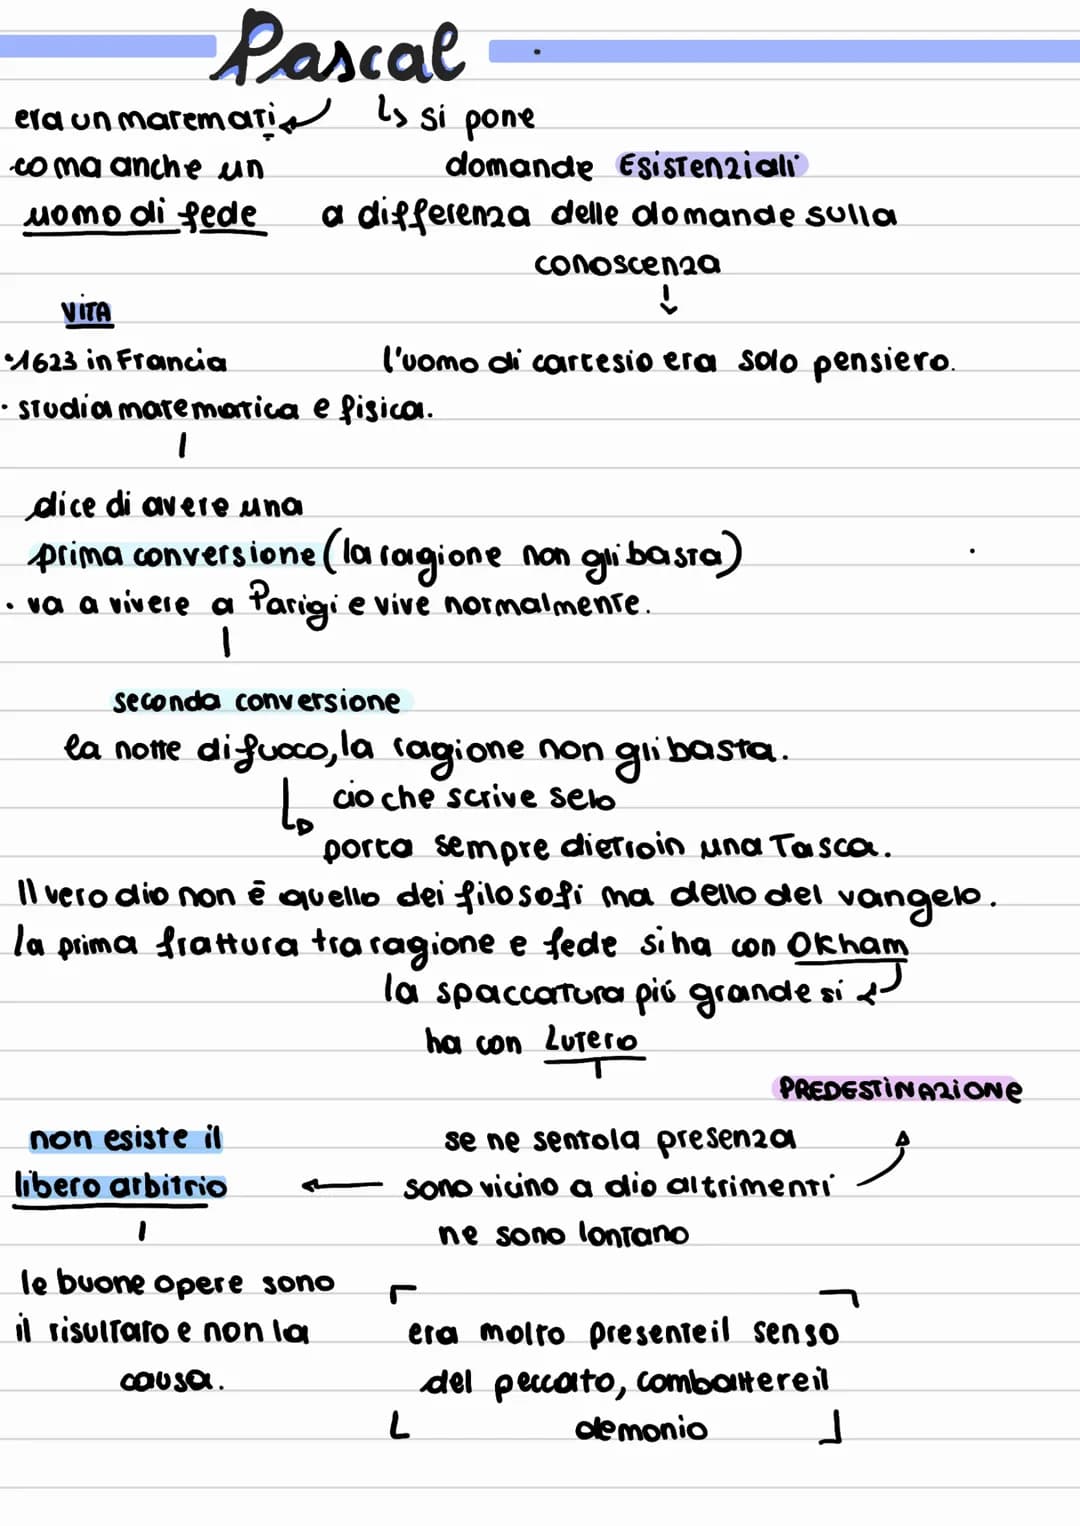 Pascal
era un matemati
co ma anche un
uomo di fede
↳ si pone
domande Esistenziali
a differenza delle domande sulla
conoscenza
↓
l'uomo di cartesio era solo pensiero.
VITA
•1623 in Francia
• studia matematica e fisica.
dice di avere una
prima conversione (la ragione non gli basta)
• va a vivere a Parigi e vive normalmente.
seconda conversione
la notte di fuoco, la ragione non gli basta.
cio che scrive selo
porta sempre dietroin una Tasca.
Il vero dio non ē quello dei filosofi ma dello del vangelo.
la prima frattura tra ragione e fede si ha con Okham
la spaccatura più grande si
ha con Lutero
PREDESTINAZIONE
se ne sento la presenza
sono vicino a dio altrimenti
ne sono lontano
non esiste il
libero arbitrio
le buone opere sono
il risultato e non la
causa.
era molto presente il senso
del peccato, combattere il
demonio